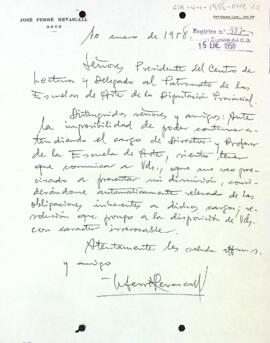 JOSÉ FERRÉ REVASCALL
REUS
10 enero de 1958
Registro nº 987
15 ENE. 1958
Señores Presidente del Centro de
Lectura y Delegado al Patronato de las
Escuelas de Arte de la Diputación Provincial.
Distinguidos señores y amigos: Ante
la imposibilidad de poder continuar a-
tendiendo el cargo de Director y Profesor
de la Escuela de Arte, siento tener
que comunicar a Vds., que me veo pre-
cisado a presentar mi dimisión, consi-
derándome automaticamente relevado de las
obligaciones inherentes a dichos cargos; re-
solución que pongo a la disposición de Vds.
con carácter irrevocable.
Atentamente les saluda affmo. s.
y amigo
J. Ferré Revascall